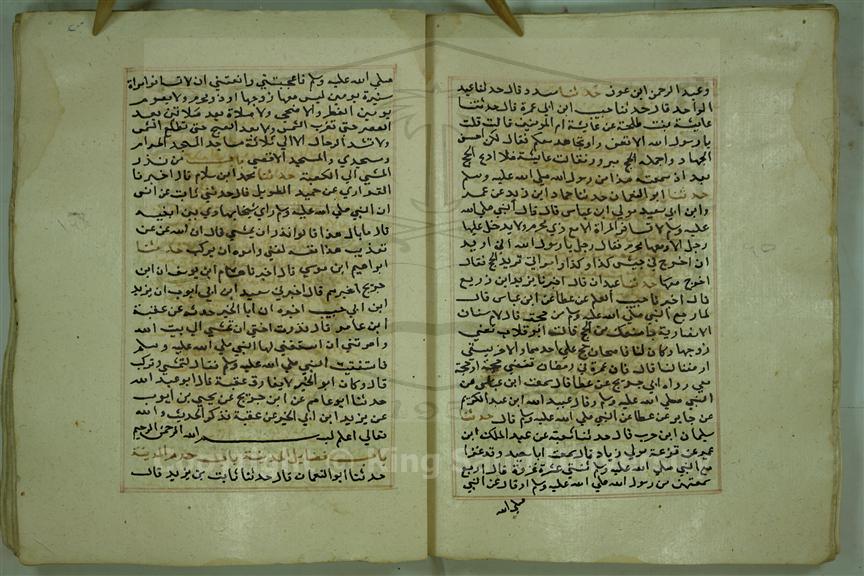 وعبد الرحمن ابن عوف حدثنا مسدد قال حدثنا عبد
الواحد قال حدثنا حبيب ابن ابي عمرة قال حدثتنا
عايشة بنت طلحة عن عايشة ام المومنين قالت قلت
يا رسول الله الا نغزوا ونجاهد معكم فقال لكن احسن
الجهاد واجمله الحج حج مبرور فقالت عايشة فلا ادع الحج
بعد اذ سمعت هذا من رسول الله صلي الله عليه وسلم
حدثنا ابو النعمان حدثنا حماد ابن زيد عن عمرو
عن ابي معبد مولي ابن عباس قال قال النبي صلي الله
عليه وسلم لا تسافر المراة الا مع ذي محرم ولا يدخل عليها
رجل الا ومعها محرم فقال رجل يا رسول الله اني اريد
ان اخرج في جيش كذا وكذا وامراتي تريد الحج فقال
اخرج معها حدثنا عبدان قال اخبرنا يزيد ابن زريع
قال اخبرنا حبيب المعلم عن عطا عن ابن عباس قال
لما رجع النبي صلي الله عليه وسلم من حجته قال لام سنان
الانصارية ما منعك من الحج قالت ابو فلان تعني
زوجها وكان لنا ناضحان حج علي احدهما والاخر يسقي
ارضا لنا قال فان عمرة في رمضان تقضي حجة او حجة
معي رواه ابن جريج عن عطا قال سمعت ابن عباس عن
النبي صلي الله عليه وسلم وقال عبيد الله ابن عبد الكريم
عن جابر عن عطا عن النبي صلي الله عليه وسلم قال حدثنا
سليمان ابن حرب قال حدثنا شعبة عن عبد الملك ابن
عمير عن قزعة مولي زياد قال سمعت ابا سعيد وقد غزا
مع النبي صلي الله عليه وسلم ثنتي عشرة غزوة قال اربع
سمعتهن من رسول الله صلي الله عليه وسلم او قال عن النبي
صلي الله
صلي الله عليه وسلم فاعجبتني وانقنني ان لا تسافر امراة
مسيرة يومين ليس معها زوجها او ذو محرم ولا يصوم
يومين الفطر والاضحي ولا صلاة بعد صلاتين بعد
العصر حتي تغرب الشمس ولا بعد الصبح حتي تطلع الشمس
ولا تشد الرحال الا الي ثلاثة مساجد المسجد الحرام
ومسجدي والمسجد الاقصي من نذر
المشي الي الكعبة حدثنا محمد ابن سلام قال اخبرنا
الفزاري عن حميد الطويل قال حدثني ثابت عن انس
ان النبي صلي الله عليه وسلم راي شيخا يهادي بين ابنيه
قال ما بال هذا قالوا نذر ان يمشي قال ان الله عن
تعذيب هذا نفسه لغني وامره ان يركب حدثنا
ابراهيم ابن موسي قال اخبرنا هشام ابن يوسف ان ابن
جريج اخبرهم قال اخبرني سعيد ابن ابي ايوب ان يزيد
ابن ابي حبيب اخبره ان ابا الخير حدثه عن عقبة
ابن عامر قال نذرت اختي ان تمشي الي بيت الله
وامرتني ان استفتي لها النبي صلي الله عليه وسلم
فاستفتيت النبي صلي الله عليه وسلم فقال لتمشي ولتركب
قال وكان ابو الخير لا يفارق عقبة قال ابو عبد الله
حدثنا ابو عاصم عن ابن جريج عن يحيي بن ايوب
عن يزيد ابن ابي الخير عن عقبة فذكر الحديث والله
تعالي اعلم بسم الله الرحمن الرحيم
باب فضايل المدينة باب حرم المدينة
حدثنا ابو النعمان قال حدثنا ثابت بن يزيد قال